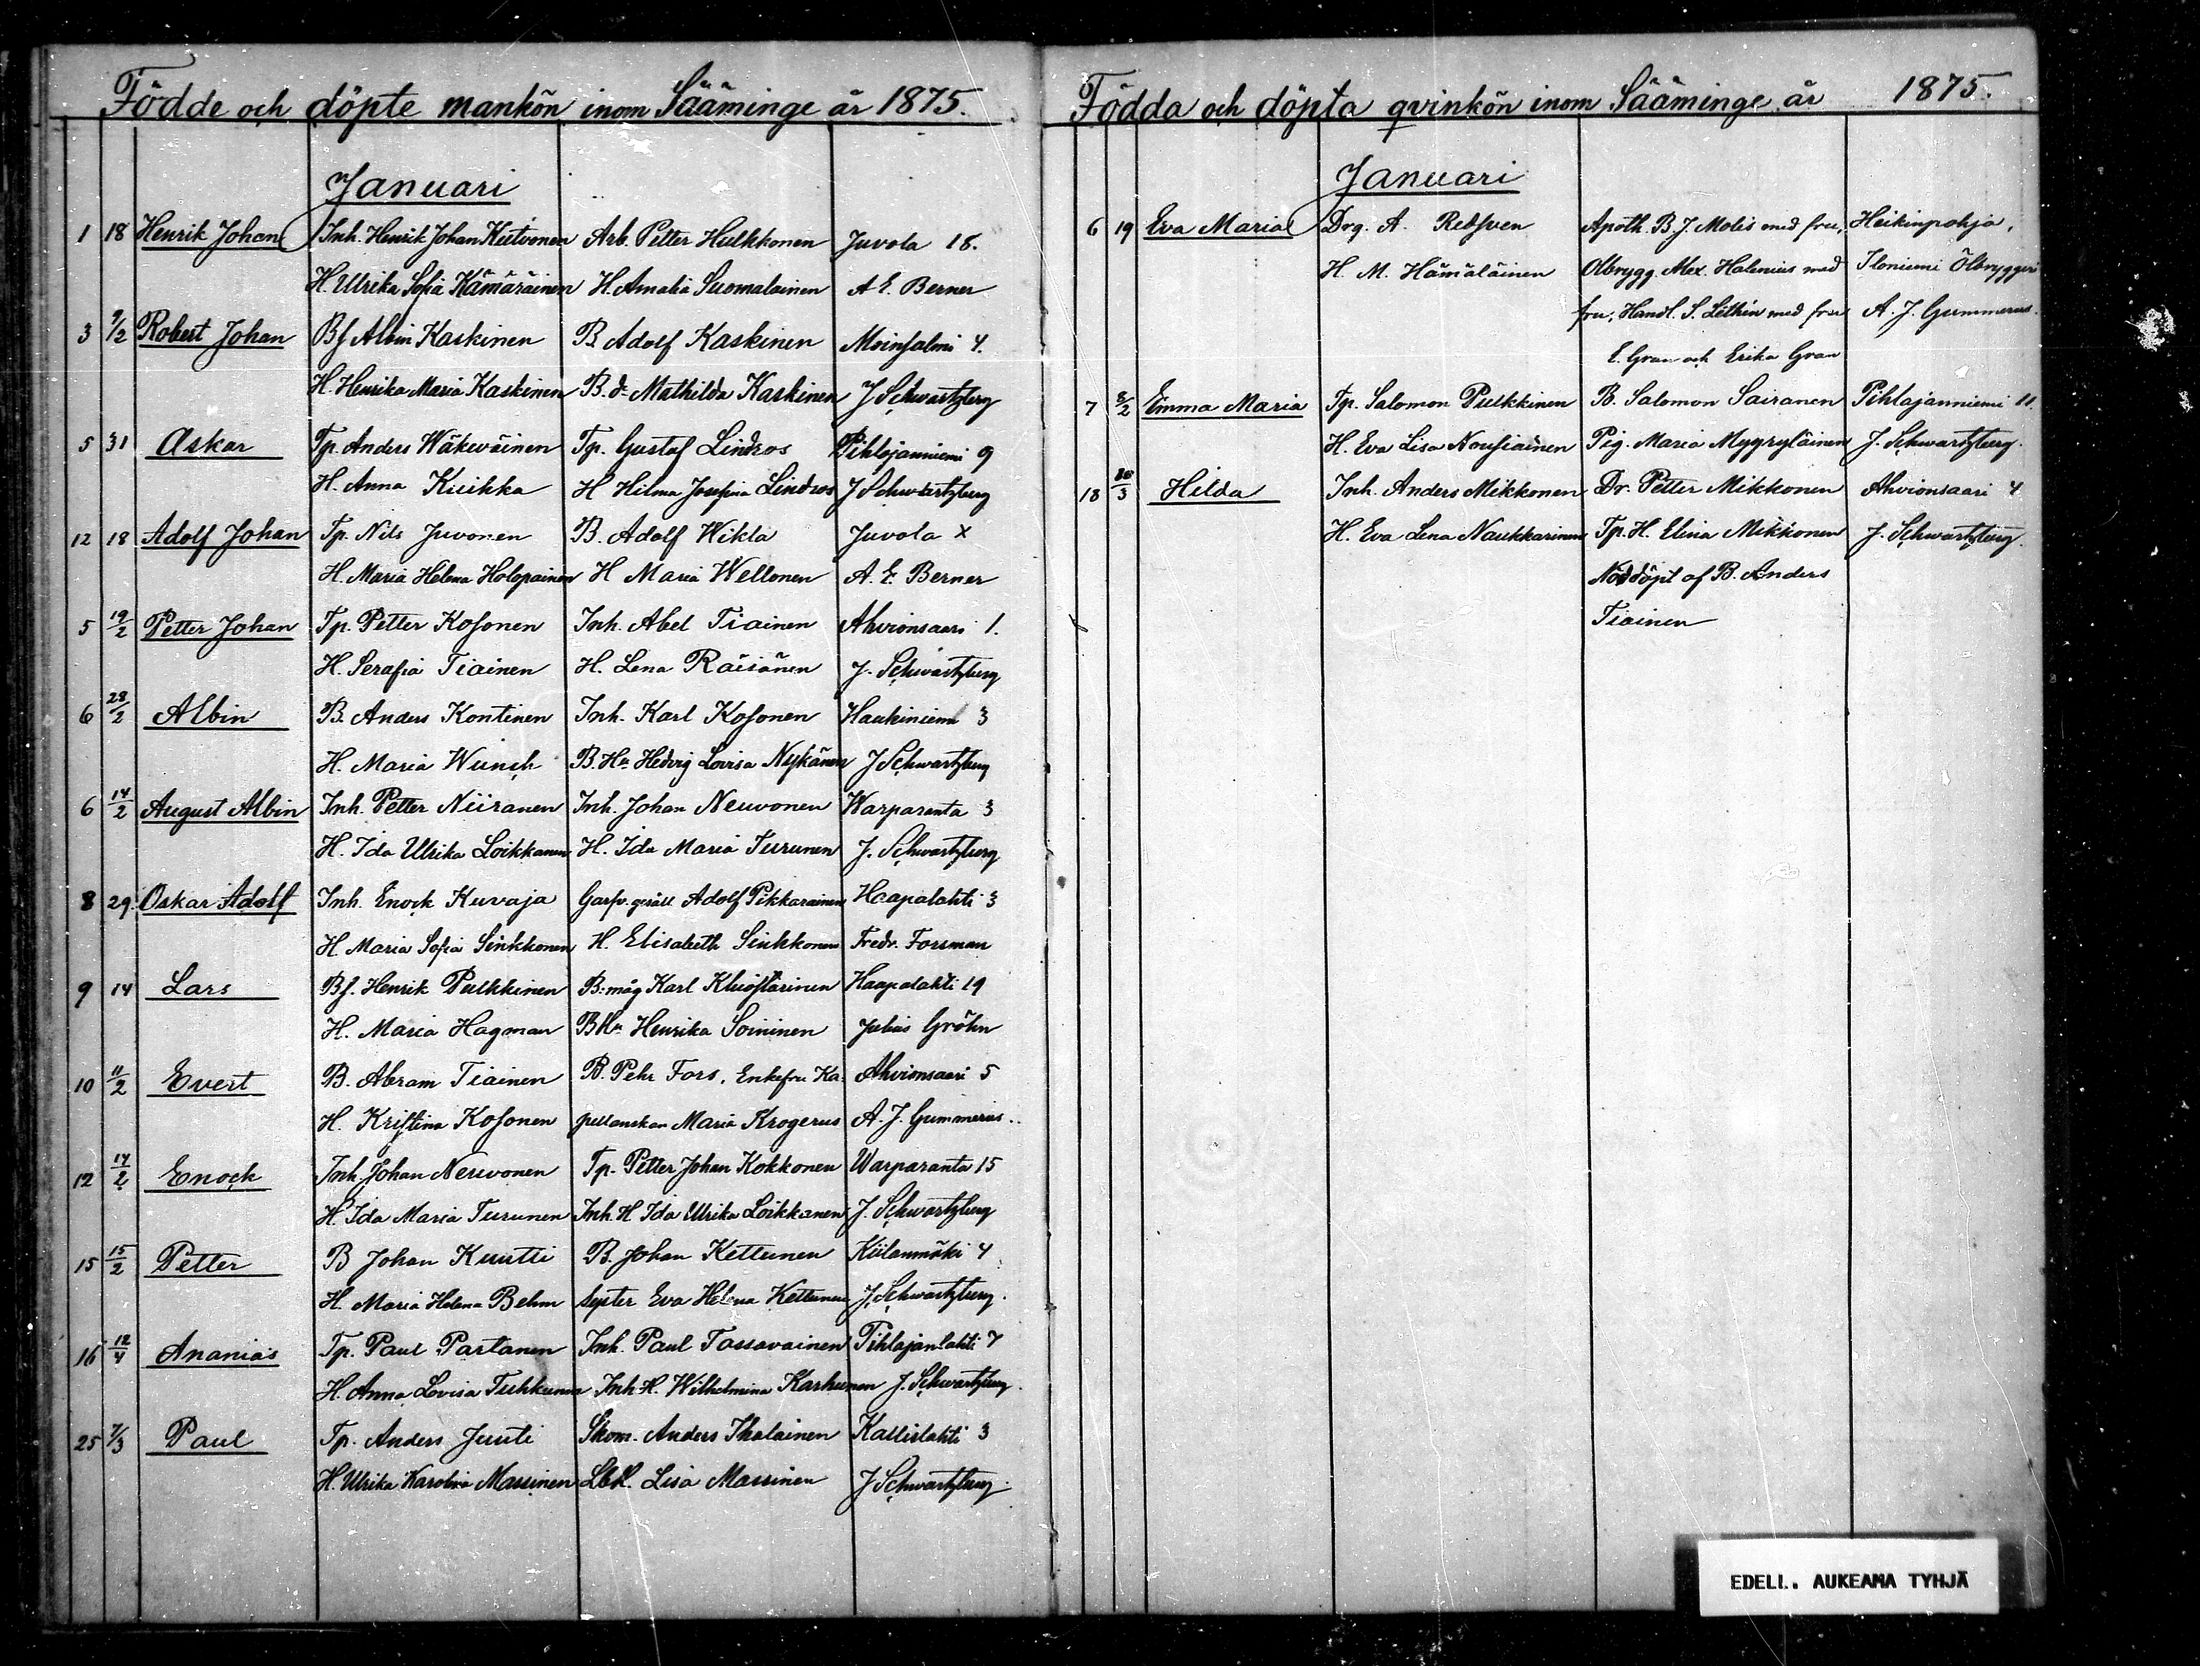 Födde och döpte mankön inom Sääminge år 1875.
Januari
1 18 Henrik Johan Inh. Henrik Johan Kiitvonen Arb. Petter Hulkkonen Juvola 18.
H. Ulrika Sofia Kämäräinen H. Amalia Suomalainen A E. Berner
3 7/2 Robert Johan Bf Albin Kaskinen B. Adolf Kaskinen Moinsalmi 4.
H. Henrika Maria Kaskinen B. d. Mathilda Kaskinen J Schwartzberg
5 31 Askar Tp. Anders Wäkeväinen Tp. Gustaf Lindros Pihlajanniemi 9
H. Anna Kuikka H Hilma Josefina Lindros J Schwartzberg
12 18 Adolf Johan Tp. Nils Juvonen B. Adolf Wikla Juvola x
H. Maria Helena Holopainen H Maria Wellonen A. E. Berner
5 19/2 Petter Johan Tp. Petter Kosonen Inh. Abel Tiainen Ahvionsaari 1.
H. Serafia Tiainen H. Lena Räisänen J. Schwartzberg
6 28/2 Albin B. Anders Kontinen Inh. Karl Kosonen Haukiniemi 3
H. Maria Wunsch B. Hu Hedvig Lovisa Nykänen J Schwartzberg
6 14/2 August Albin Inh. Petter Niiranen Inh. Johan Neuvonen Warparanta 3
H. Ida Ulrika Loikkanen H. Ida Maria Turunen J. Schwartzberg
8 29. Oskar Adolf Inh. Enock Kuvaja Garfv. gesäll Adolf Pikkarainen Haapalahti 3
H. Maria Sofia Sinkkonen H. Elisabeth Sinkkonen Fredr. Forsman
9 14 Lars Bf. Henrik Pulkkinen B: måg Karl Haapalahti 19
H. Maria Hagman B Hu Henrika Soininen Julius Gröhn
10 11/2 Evert B. Abram Tiainen B. Pehr Fors, Enkefru Ka- Ahvionsaari 5
H. Kristina Kosonen pellanskan Maria Krogerus A. J. Gummerus.
12 14/2 Enock Inh. Johan Neuvonen Tp. Petter Johan Kokkonen Warparanta 15
H. Ida Maria Turunen Inh. H Ida Ulrika Loikkanen J. Schwartzberg
15 15/2 Petter B Johan Kuutti B. Johan Kettunen Kiilanmäki 4
H. Maria Helena Behm Syster Eva Helena Kettunen J. Schwartzberg.
16 12/4 Ananias Tp. Paul Partanen Inh. Paul Tossavainen Pihlajanlahti 7
H. Anna Lovisa Tuhkunen Inh. H. Wilhelmina Karhunen J. Schwartzberg.
25 7/3 Paul Tp. Anders Juuti Skom. Anders Ihalainen Kallislahti 3
H. Ulrika Karolina Massinen Lbk. Lisa Massinen J Schwartzberg.
Födda och döpta qvinkön inom Sääminge år 1875.
Januari
6 19 Eva Maria Drg. A. Redsven Apoth. B. J. Molis med fru, Heikinpohja,
H. M. Hämäläinen Ölbrygg. Alex. Halenius med Iloniemi Ölbryggeri
fru, Handl. S. Lithin med fru A. J. Gummerus.
E. Gran och Erika Gran
7 8/2 Emma Maria Tp. Salomon Pulkkinen B. Salomon Sairanen Pihlajanniemi 11.
H. Eva Lisa Nousiainen Pig. Maria Mygryläinen J. Schwartzberg.
18 28/3 Hilda Inh. Anders Mikkonen Dr. Petter Mikkonen Ahvionsaari 4
H. Eva Lena Naukkarinen Tp. H. Elina Mikkonen J. Schwartzberg.
Nöddöpt af B. Anders
Tiainen
EDELL. AUKEAMA TYHJÄ